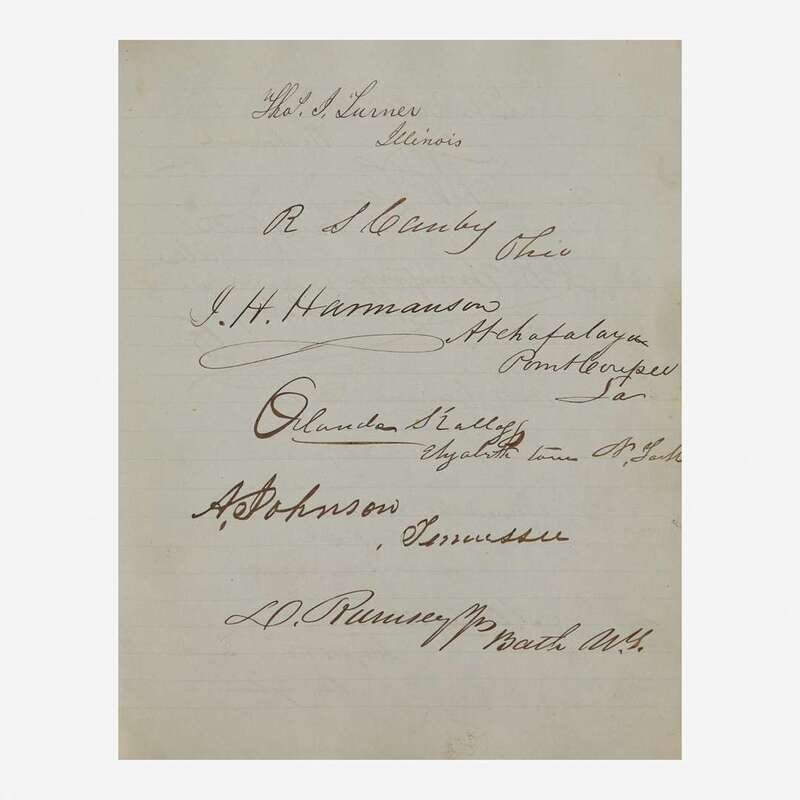 Tho's. J. Turner
Illinois
R S Canby
Ohio
J. H. Harmanson
Atchafalaya
Point Coupee
La
Orlando Kellogg
Elyabeth town N. York
A. Johnson
, Tennessee
D. Rumsey Jr
Bath N.Y.